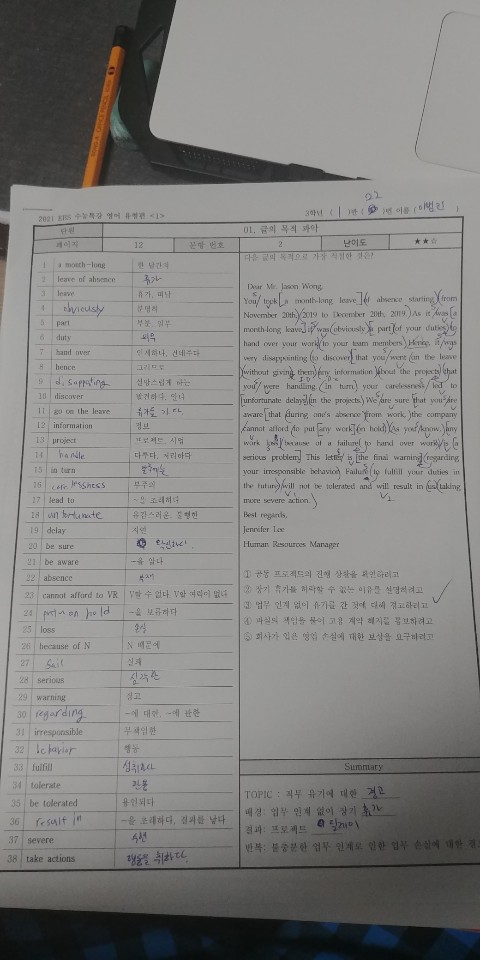 2021 EBS 수능특강 영어 유형편 <1>
3학년 ( 1 )반 ( )번 이름 (이범진)
22
단원
01. 글의 목적 파악
페이지
12
문항 번호
2
난이도
★★☆
1 a month-long 한 달간의
2 leave of absence 휴가
3 leave 휴가, 떠남
4 obviously 분명히
5 part 부분, 일부
6 duty 의무
7 hand over 인계하다, 건네주다
8 hence 그러므로
9 실망스럽게 하는
10 discover 발견하다, 알다
11 go on the leave 휴가를 가다
12 information 정보
13 project 프로젝트, 사업
14 handle 다루다, 처리하다
15 in turn 결과적으로
16 carelessness 부주의
17 lead to ~을 초래하다
18 unfortunate 유감스러운, 불행한
19 delay 지연
20 be sure 확신하다
21 be aware ~을 알다
22 absence 부재
23 cannot afford to VR V할 수 없다, V할 여력이 없다
24 put on hold ~을 보류하다
25 loss 손실
26 because of N N 때문에
27 실패
28 serious 심각한
29 warning 경고
30 regarding ~에 대한, ~에 관한
31 irresponsible 무책임한
32 behavior 행동
33 fulfill
34 tolerate
35 be tolerated 용인되다
36 result in ~을 초래하다, 결과를 낳다
37 severe
38 take actions 행동을 취하다.
다음 글의 목적으로 가장 적절한 것은?
Dear Mr. Jason Wong,
You took a month-long leave of absence starting from
November 20th, 2019 to December 20th, 2019. As it was a
month-long leave, it was obviously a part of your duties to
hand over your work to your team members. Hence, it was
very disappointing to discover that you went on the leave
without giving them any information about the projects that
you were handling. In turn, your carelessness led to
unfortunate delays in the projects. We are sure that you are
aware that during one's absence from work, the company
cannot afford to put any work on hold. As you know, any
work loss because of a failure to hand over work is a
serious problem. This letter is the final warning regarding
your irresponsible behavior. Failure to fulfill your duties in
the future will not be tolerated and will result in us taking
more severe action.
Best regards,
Jennifer Lee
Human Resources Manager
① 공동 프로젝트의 진행 상황을 확인하려고
② 장기 휴가를 허락할 수 없는 이유를 설명하려고
③ 업무 인계 없이 휴가를 간 것에 대해 경고하려고
④ 과실의 책임을 물어 고용 계약 해지를 통보하려고
⑤ 회사가 입은 영업 손실에 대한 보상을 요구하려고
Summary
TOPIC : 직무 유기에 대한 경고
배경: 업무 인계 없이 장기 휴가
결과: 프로젝트 딜레이
반복: 불충분한 업무 인계로 인한 업무 손실에 대한 경